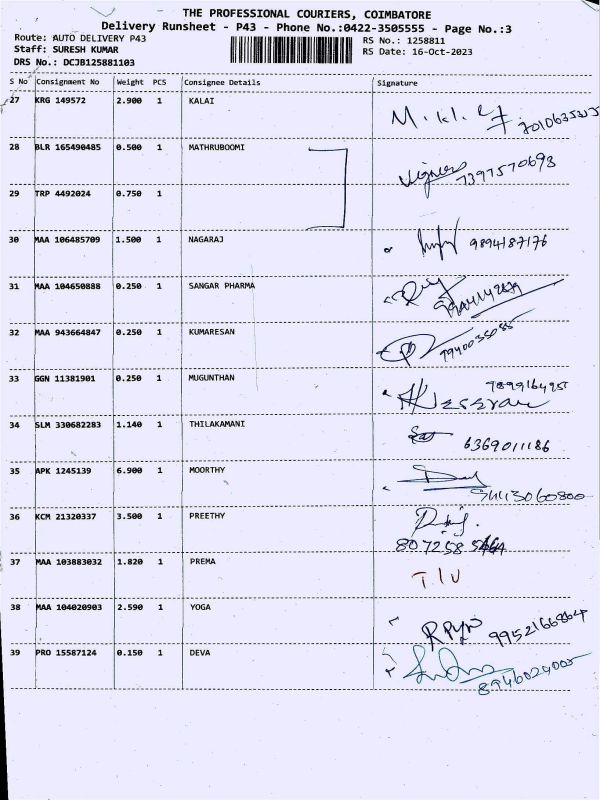 THE PROFESSIONAL COURIERS, COIMBATORE
Delivery Runsheet - P43 - Phone No.:0422-3505555 - Page No.:3
Route: AUTO DELIVERY P43
Staff: SURESH KUMAR
DRS No.: DCJB125881103
RS No.: 1258811
RS Date: 16-Oct-2023
S No Consignment No Weight PCS Consignee Details Signature
27 KRG 149572 2.900 1 KALAI
28 BLR 165490485 0.500 1 MATHRUBOOMI 7397570693
29 TRP 4492024 0.750 1
30 MAA 106485709 1.500 1 NAGARAJ 9894187176
31 MAA 104650888 0.250 1 SANGAR PHARMA
32 MAA 943664847 0.250 1 KUMARESAN
33 GGN 11381901 0.250 1 MUGUNTHAN
34 SLM 330682283 1.140 1 THILAKAMANI 6369011186
35 APK 1245139 6.900 1 MOORTHY
36 KCM 21320337 3.500 1 PREETHY
37 MAA 103883032 1.820 1 PREMA
38 MAA 104020903 2.590 1 YOGA 9952166864
39 PRO 15587124 0.150 1 DEVA